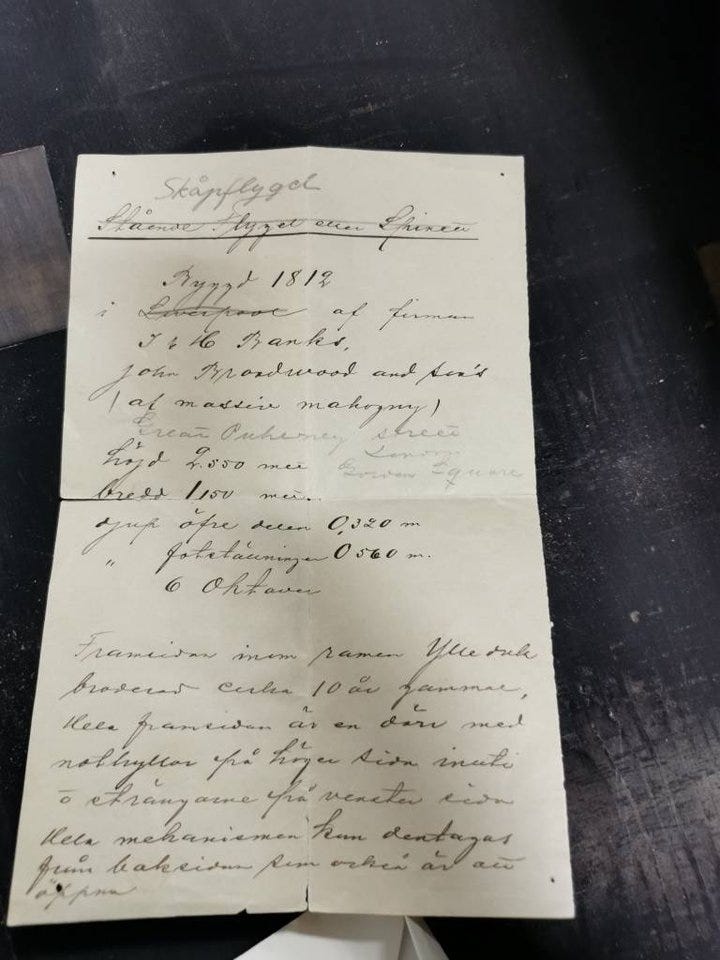 Skåpflygel
Stående Flygel eller Spinett
Byggd 1812
i Liverpool af firman
T & H Banks,
John Broadwood and son's
(af massiv mahogny)
Great Pulteney street
London
höjd 2.550 met
Golden Square
bredd 1,150 met.
djup öfre delen 0,320 m
" fotställningen 0560 m.
6 Oktaver
Framsidan inom ramen Ylleduk
broderad cirka 10 år gammal,
Hela framsidan är en dörr med
nothyllor på höger sida inuti
o strängarne på venster sida
Hela mekanismen kan
från baksidan som också är att
öppna